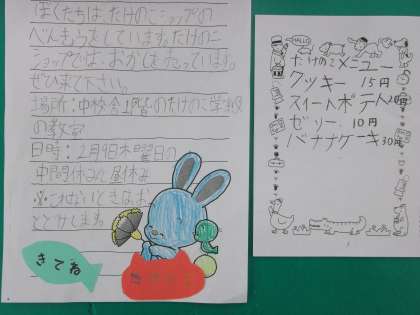 ぼくたちは、たけのこショップの
べんきょうをしています。たけのこ
ショップでは、おかしを売っています。
ぜひ来て下さい。
場所：中校舎1階のたけのこ学級
の教室
日時：2月9日木曜日の
中間休みと昼休み
きてね
HALLO
たけのこメニュー
クッキー 15円
スイートポテト 20円
ゼリー 10円
バナナケーキ 30円